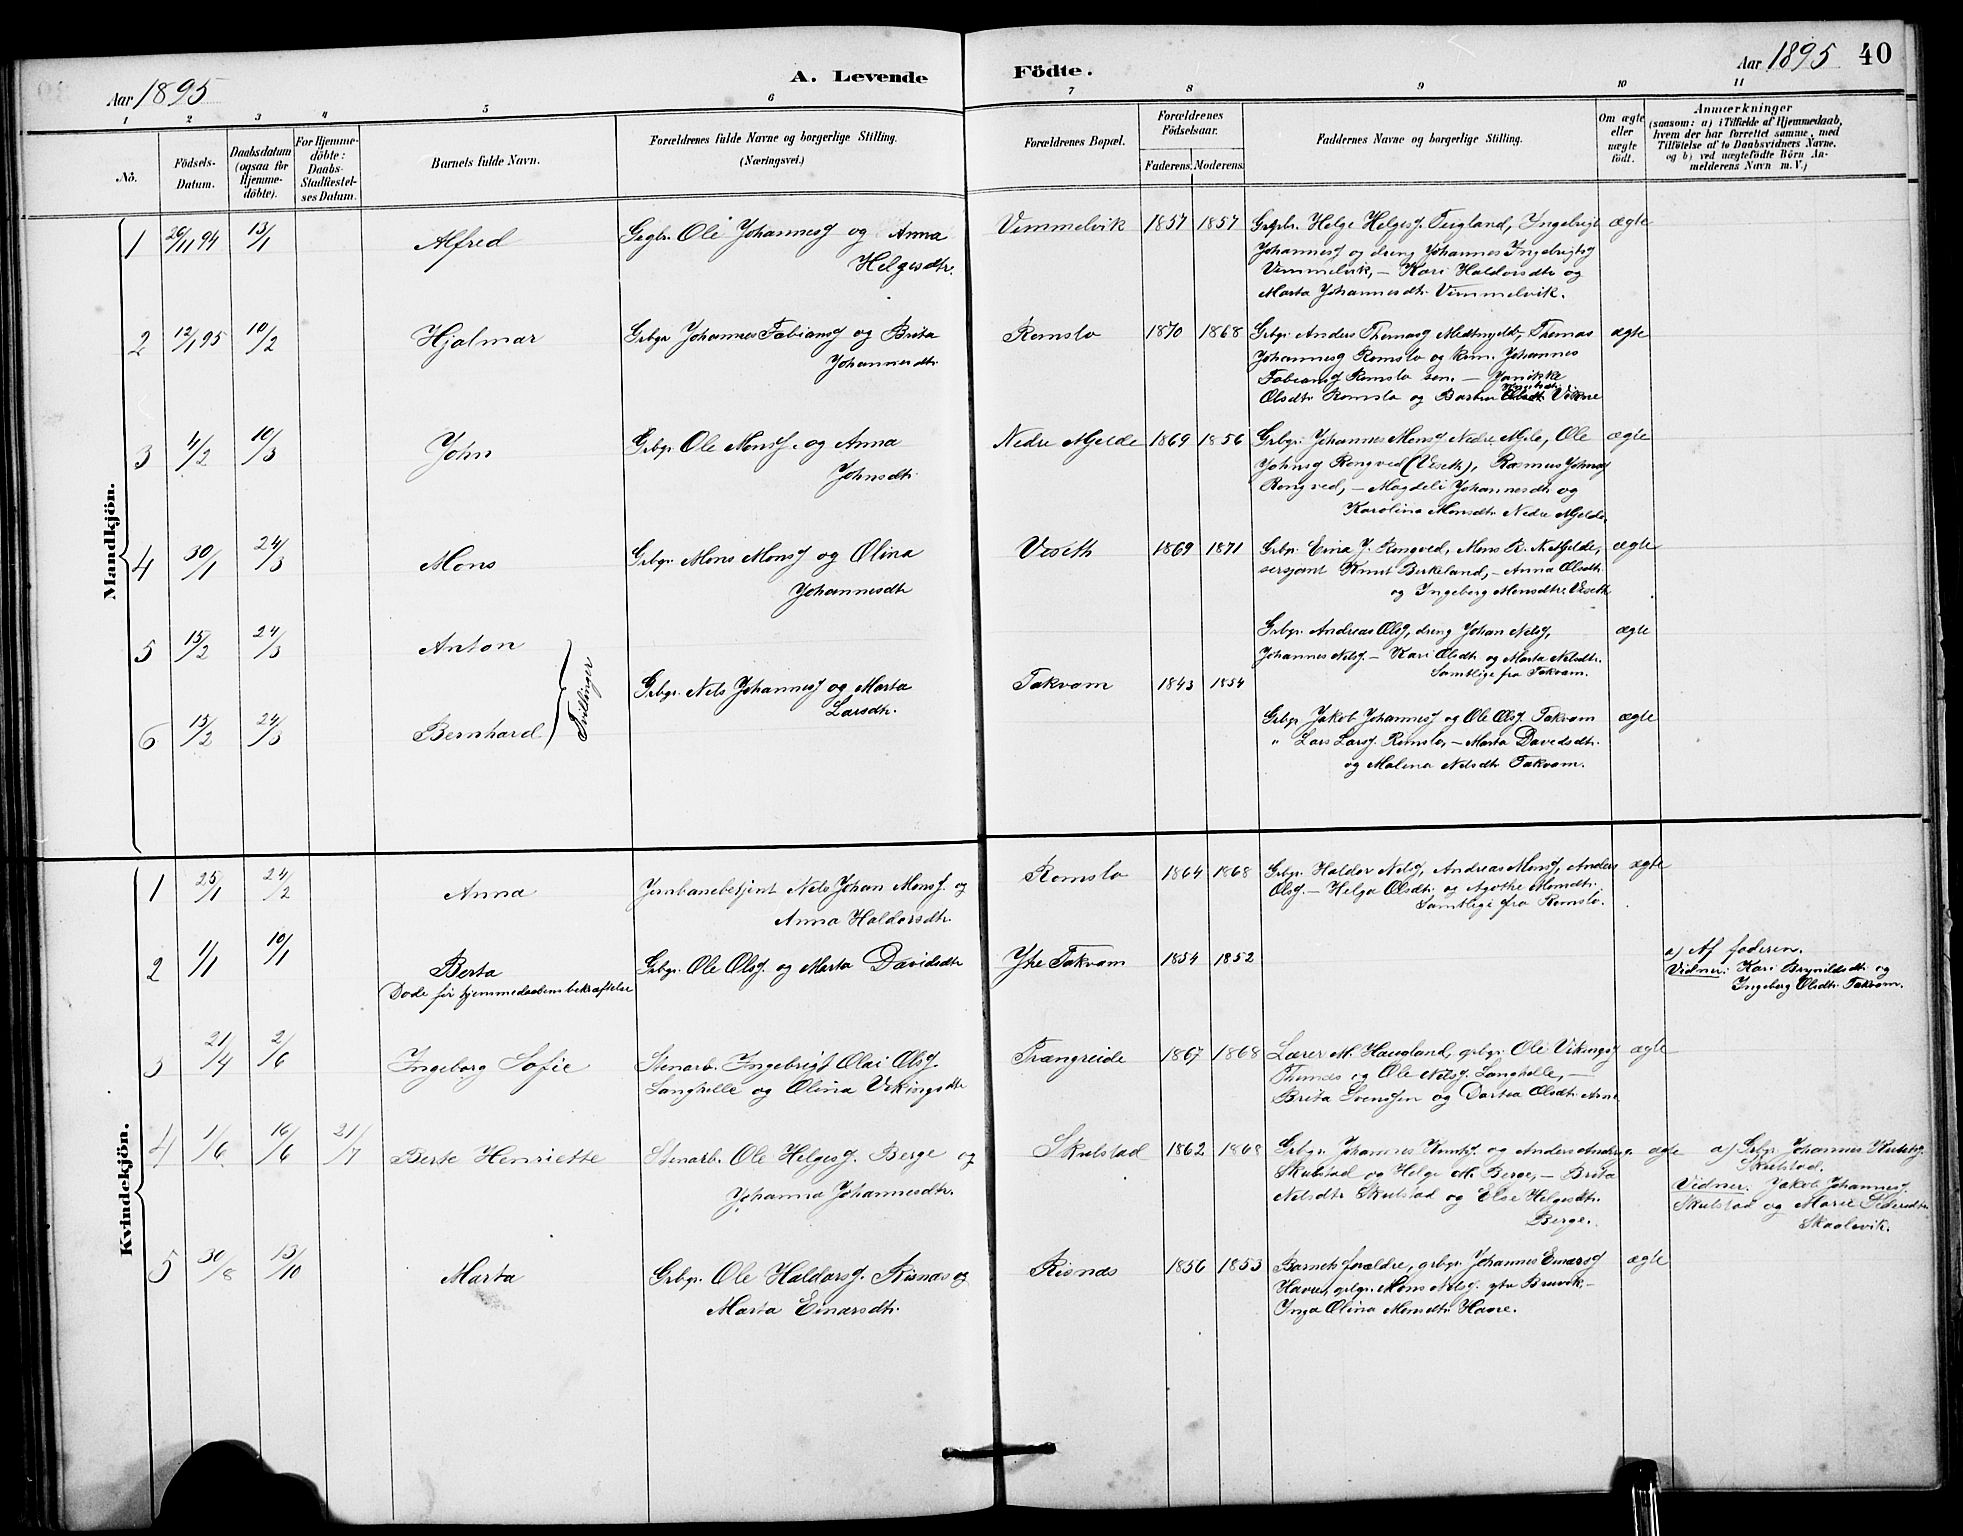 Aar 1895
A. Levende
Födte.
Aar 1895 40
1 2 3 4 5 6 7 8 9 10 11
No.
Födsels-
Datum.
Daabsdatum
(ogsaa for
Hjemme-
döbte).
For Hjemme-
döbte:
Daabs-
Stadfæstel-
ses Datum.
Barnets fulde Navn.
Forældrenes fulde Navne og borgerlige Stilling.
(Næringsvei.)
Forældrenes Bopæl.
Forældrenes
Födselsaar.
Faderens. Moderens.
Faddernes Navne og borgerlige Stilling.
Om ægte
eller
uægte
födt.
Anmærkninger
(saasom: a) i Tilfælde af Hjemmedaab,
hvem der har forrettet samme, med
Tilföielse af to Daabsvidners Navne,
og b) ved uægtefödte Börn An-
melderens Navn m. V.)
Mandkjön.
1 26/11 94 13/1 Alfred Grbgr. Ole Johanness. og Anna
Helgesdtr.
Vimmelvik 1857 1857 Grbgr. Helge Helgess. Teigland, Ingebrigt ægte
Johanness. og dreng Johannes Ingebrigts.
Vimmelvik, – Kari Haldorsdtr og
Marta Johannesdtr. Vimmelvik.
2 12/1 95 10/2 Hjalmar Grbgr Johannes Fabians. og Brita
Johannesdtr.
Romslo 1870 1868 Grbgr Anders Thomass. Thomas ægte
Johanness. Romslo og Johannes
Fabians. Romslo sen. –
Olsdtr. Romslo og Vikne
3 4/2 10/3 John Grbgr. Ole Monss. og Anna
Johnsdtr.
Nedre Mjelde 1869 1856 Grbgr. Johannes Monss. Nedre Mjele, Ole ægte
Johnss. Rongved (Veseth), Rasmus Johnss.
Rongved, – Magdeli Johannesdtr og
Karolina Monsdtr. Nedre Mjelde.
4 30/1 24/3 Mons Grbgr. Mons Monss. og Olina
Johannesdtr
Veseth 1869 1871 Grbgr. J. Rongved, Mons N. Mjelde, ægte
sersjant Knut Birkeland, – Anna Olsdtr.
og Ingeborg Monsdtr. Veseth
5 15/2 24/3 Anton
Grbgr. Andreas Olss., dreng Johan Nelss., ægte
Johannes Nelss. – Kari Olsdtr og Marta Nelsdtr.
Samtlige fra Takvam.
Tvillinger
Grbgr. Nels Johanness. og Marta
Larsdtr.
Takvam 1843 1854
6 15/2 24/3 Bernhard
Grbgr. Jakob Johanness. og Ole Olss. Takvam ægte
" Lars Larss. Romslo, – Marta Davidsdtr.
og Malena Nelsdtr Takvam.
Kvindekjön.
1 25/1 24/2 Anna Jernbanebetjent Nels Johan Monss. og
Anna Haldorsdtr.
Romslo 1864 1868 Grbgr. Haldor Nelss., Andreas Monss., Anders ægte
Olss. – Helga Olsdtr. og Agathe Monsdtr.
Samtlige fra Romslo.
2 1/1 10/1 Berta Grbgr. Ole Olss. og Marta Davidsdtr
Döde för hjemmedaabens bekræftelse
Ytre Takvam 1854 1852
a) Af faderen.
Vidner: Kari Brynildsdtr. og
Ingeborg Olsdtr. Takvam.
3 21/4 2/6 Ingeborg Sofie Stenarb. Ingebrigt Olai Olss.
Langhelle og Olina Vikingsdtr
Trængreide 1867 1868 Lærer M. Haugland, grbgr. Ole Vikingss. ægte
Thomas og Ole Nelss. Langhelle, –
Brita Svenssen og Dortea Olsdtr. Arne
4 1/6 16/6 21/7 Berte Henriette Stenarb. Ole Helgess. Berge og
Johanna Johannesdtr.
Skulstad 1862 1868 Grbgr. Johannes Knuts. og Anders Anders. ægte
Skulstad og Helge M. Berge, – Brita
Nelsdtr Skulstad og Else Helgesdtr.
Berge.
a) Grbgr. Johannes Knutss.
Skulstad.
Vidner: Jakob Johanness.
Skulstad og Marie Pedersdtr
Skaalevik.
5 30/8 13/10 Marta Grbgr. Ole Haldorss. Risnæs og
Marta Einarsdtr.
Risnæs 1856 1853 Barnets forældre, grbgr. Johannes Einarss. ægte
Havre, grbgr. Mons Nelss. ytre Bruvik, –
Inga Olina Monsdtr. Havre.